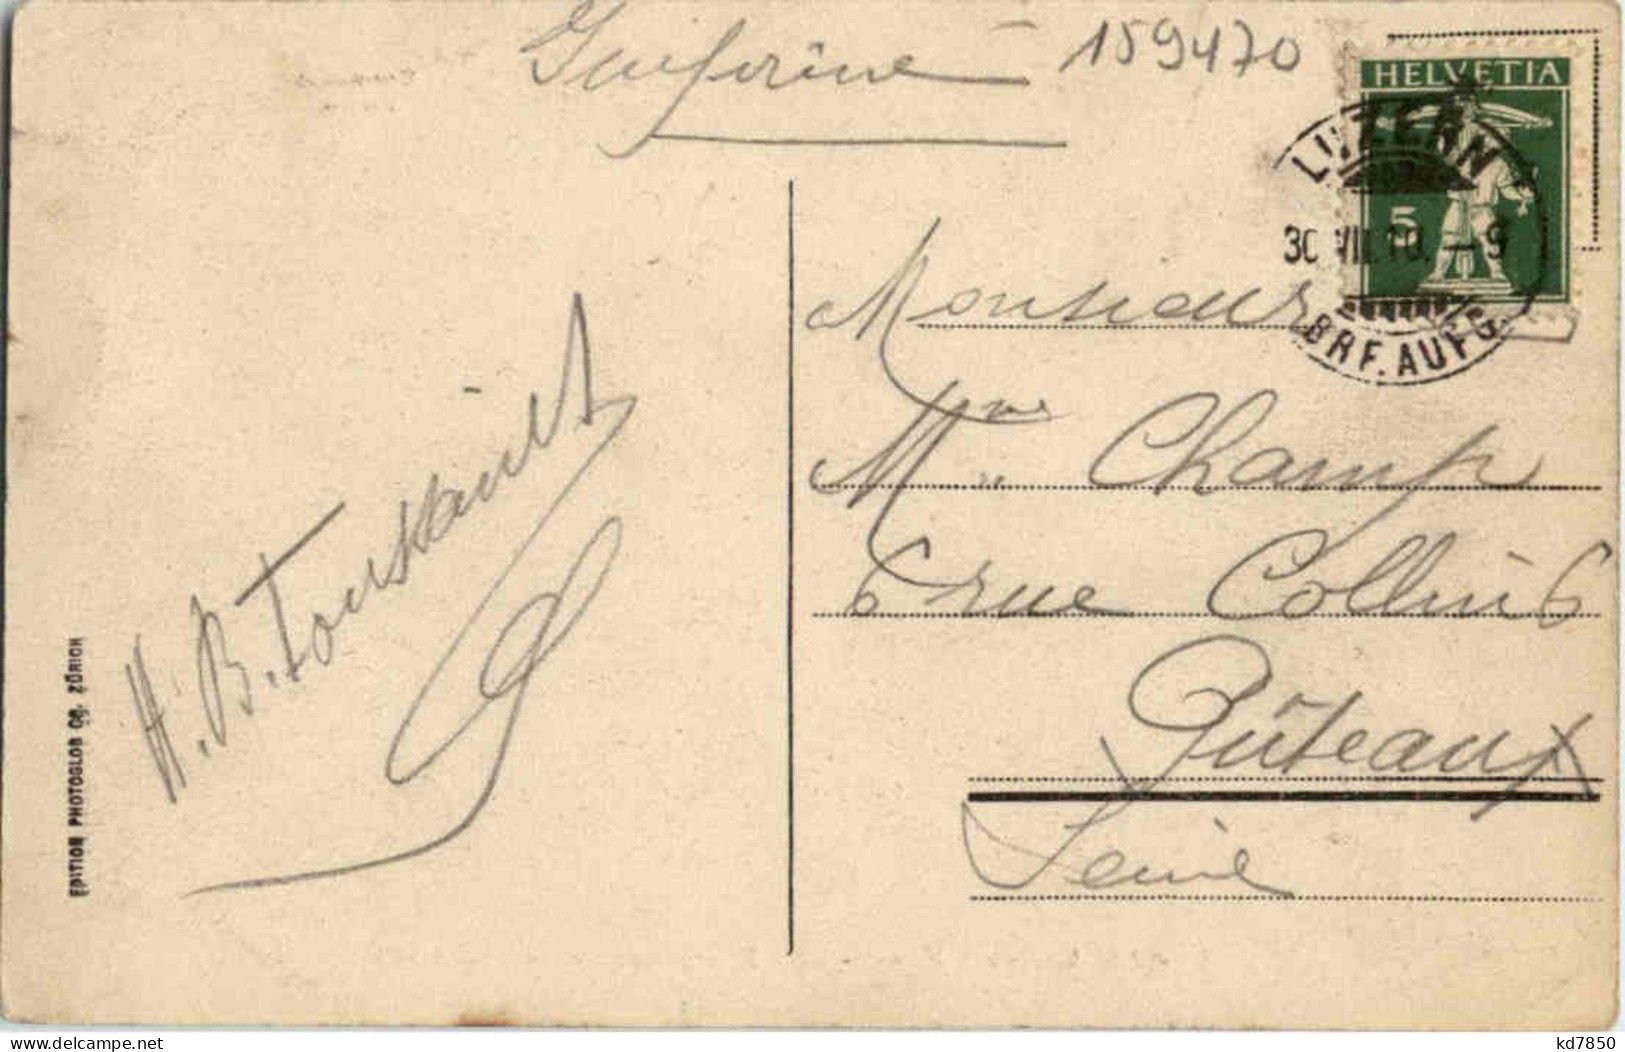 159470
HELVETIA
LUZERN
5
30 VII 10. – 9
BRF. AUFG.
Monsieur
Mme Champ
6 rue Collin 6
Puteaux
Seine
EDITION PHOTOGLOB Co. ZÜRICH
kd7850